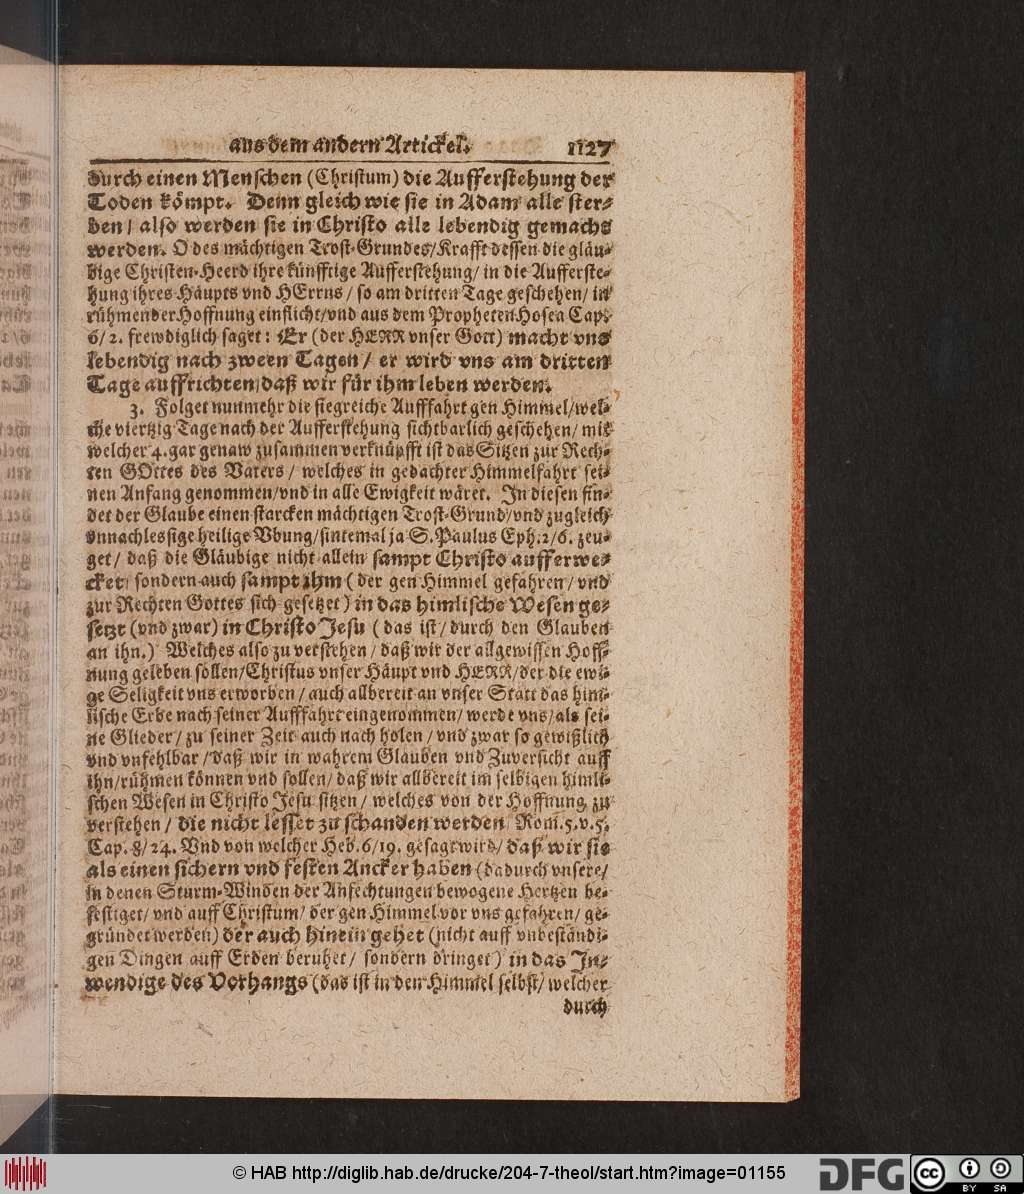 aus dem andern Artickel. 1127
durch einen Menschen (Christum) die Aufferstehung der
Toden kömpt. Denn gleich wie sie in Adam alle ster-
ben / also werden sie in Christo alle lebendig gemacht
werden. O des mächtigen Trost-Grundes/Krafft dessen die gläu-
bige Christen-Heerd ihre künfftige Aufferstehung/ in die Aufferste-
hung ihres Häupts vnd HErrns / so am dritten Tage geschehen/ in
rühmender Hoffnung einflicht/vnd aus dem Propheten Hosea Cap.
6/2. frewdiglich saget: Er (der HERR vnser Gott) macht vns
lebendig nach zween Tagen / er wird vns am dritten
Tage auffrichten/daß wir für ihm leben werden.
3. Folget nunmehr die siegreiche Aufffahrt gen Himmel/wel-
che viertzig Tage nach der Aufferstehung sichtbarlich geschehen/ mit
welcher 4. gar genaw zusammen verknüpfft ist das Sitzen zur Rech-
ten GOttes des Vaters / welches in gedachter Himmelfahrt sei-
nen Anfang genommen/vnd in alle Ewigkeit wäret. In diesen fin-
det der Glaube einen starcken mächtigen Trost-Grund/vnd zugleich
vnnachlessige heilige Vbung/sintemal ja S. Paulus Eph.2/6. zeu-
get / daß die Gläubige nicht allein sampt Christo aufferwe-
cket/ sondern auch sampt ihm ( der gen Himmel gefahren / vnd
zur Rechten Gottes sich gesetzet ) in das himlische Wesen ge-
setzt (vnd zwar) in Christo Jesu ( das ist / durch den Glauben
an ihn.) Welches also zu verstehen / daß wir der allgewissen Hoff-
nung geleben sollen/Christus vnser Häupt vnd HERR/der die ewi-
ge Seligkeit vns erworben / auch allbereit an vnser Statt das him-
lische Erbe nach seiner Aufffahrt eingenommen/ werde vns/als sei-
ne Glieder / zu seiner Zeit auch nach holen / vnd zwar so gewißlich
vnd vnfehlbar / daß wir in wahrem Glauben vnd Zuversicht auff
ihn/rühmen können vnd sollen/ daß wir allbereit im selbigen himli-
schen Wesen in Christo Jesu sitzen / welches von der Hoffnung zu
verstehen / die nicht lesset zu schanden werden/ Rom.5.v.5.
Cap. 8/24. Vnd von welcher Heb.6/19. gesagt wird/ daß wir sie
als einen sichern vnd festen Ancker haben (dadurch vnsere/
in denen Sturm-Winden der Anfechtungen bewogene Hertzen be-
festiget/ vnd auff Christum/ der gen Himmel vor vns gefahren/ ge-
gründet werden) der auch hinein gehet (nicht auff vnbeständi-
gen Dingen auff Erden beruhet / sondern dringet ) in das In-
wendige des Vorhangs (das ist in den Himmel selbst/ welcher
durch
© HAB http://diglib.hab.de/drucke/204-7-theol/start.htm?image=01155
DFG
cc BY SA